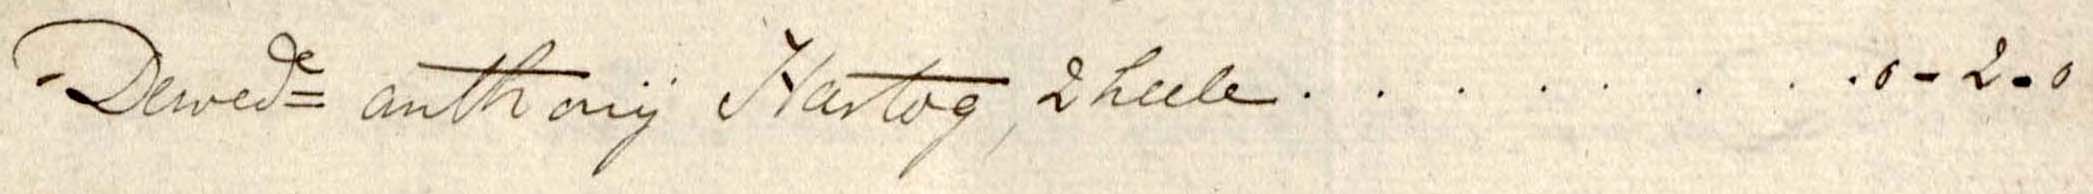 Dewed=de anthonij Hartog, 2 heele . . . . . . . . 0 - 2 - 0